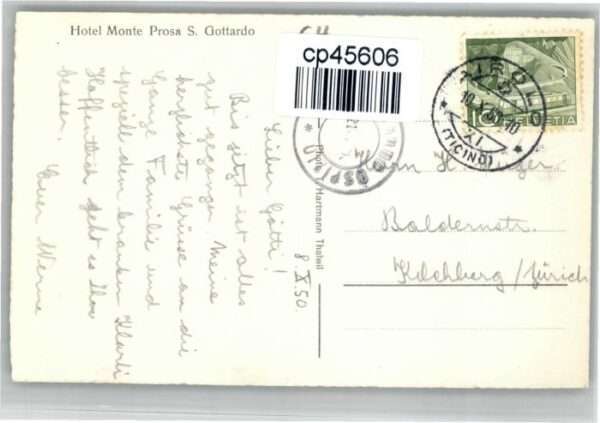 Hotel Monte Prosa S. Gottardo
cp45606
AIROLO
10.X.50.10
XI
(TICINO)
10 HELVETIA
OSPIZIO
Photo Hartmann Thalwil
Herrn H.
Baldernstr.
Kilchberg / Zürich
8 X 50.
Lieber Götti!
Bis jetzt ist alles
gut gegangen. Meine
herzlichste Grüsse an die
Ganze Familie und
speziell dem kranken
Hoffentlich geht es Ihm
besser. Euer Werner